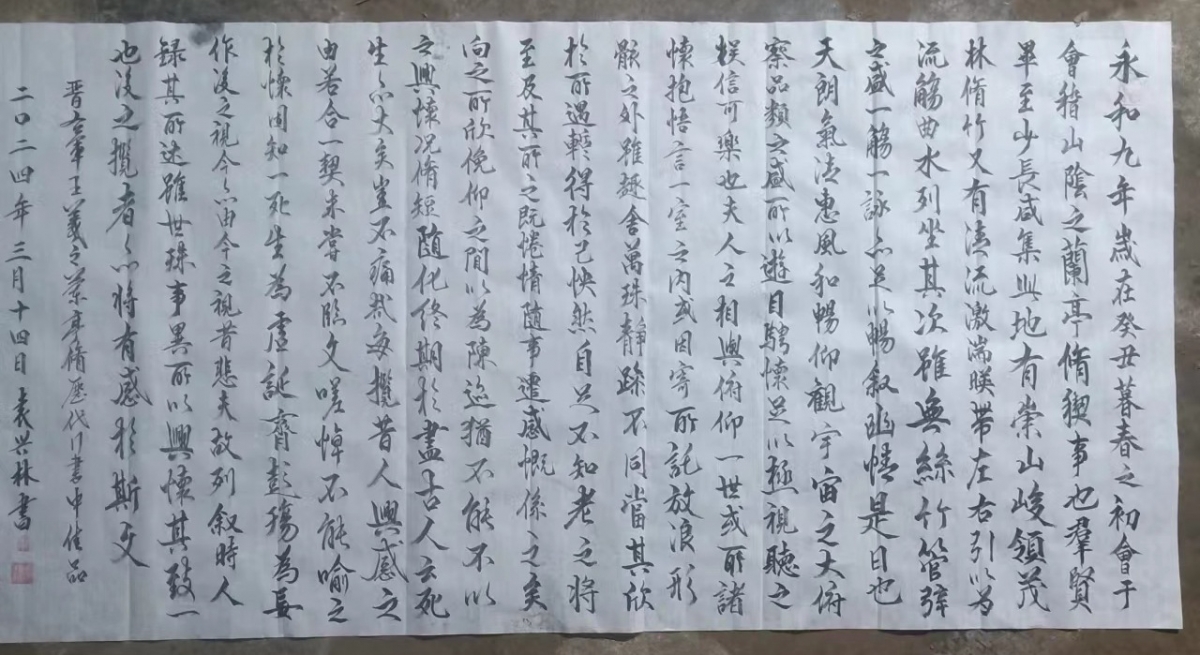 永和九年歲在癸丑暮春之初會于
會稽山陰之蘭亭脩禊事也羣賢
畢至少長咸集此地有崇山峻領茂
林脩竹又有清流激湍暎帶左右引以為
流觴曲水列坐其次雖無絲竹管弦
之盛一觴一詠亦足以暢敘幽情是日也
天朗氣清惠風和暢仰觀宇宙之大俯
察品類之盛所以遊目騁懷足以極視聽之
娛信可樂也夫人之相與俯仰一世或取諸
懷抱悟言一室之內或因寄所託放浪形
骸之外雖趣舍萬殊靜躁不同當其欣
於所遇暫得於己怏然自足不知老之將
至及其所之既惓情隨事遷感慨係之矣
向之所欣俛仰之間以為陳迹猶不能不以
之興懷況脩短隨化終期於盡古人云死
生亦大矣豈不痛哉每攬昔人興感之
由若合一契未嘗不臨文嗟悼不能喻之
於懷固知一死生為虛誕齊彭殤為妄
作後之視今亦由今之視昔悲夫故列敘時人
錄其所述雖世殊事異所以興懷其致一
也後之攬者亦將有感於斯文
晋右軍王羲之蘭亭脩歷代行書中佳品
二〇二四年三月十四日袁兴林書